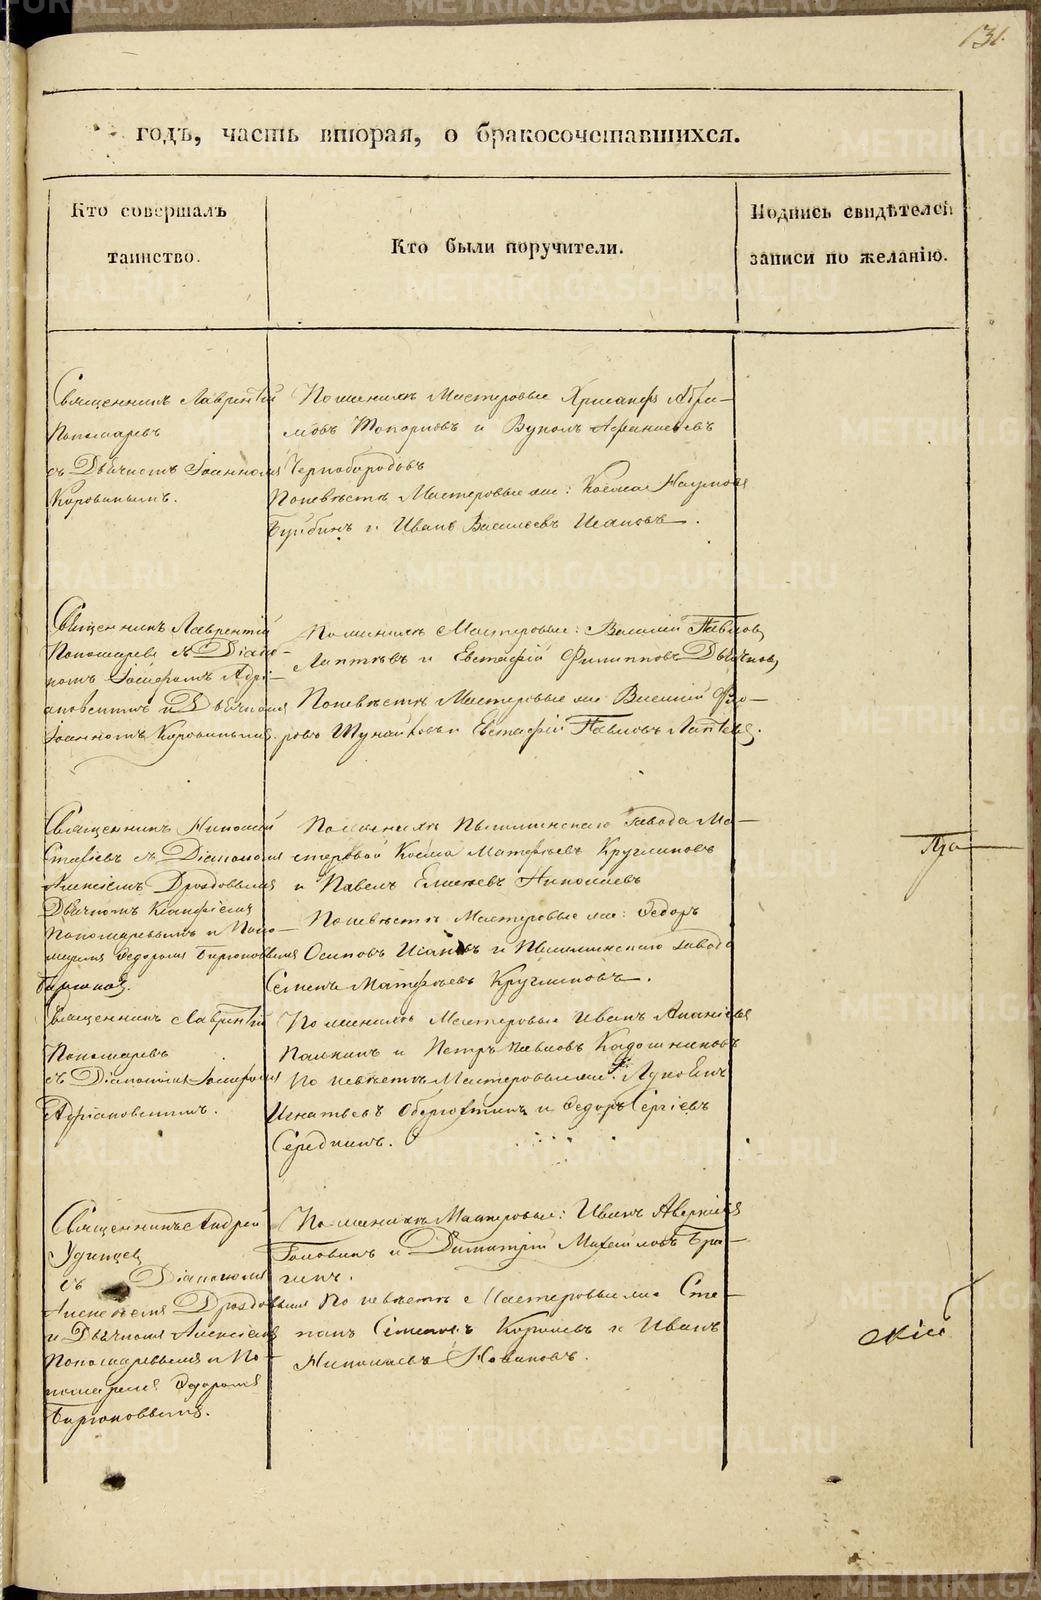 131.
годъ, часть вторая, о бракосочетавшихся.
Кто совершалъ
таинство.
Кто были поручители.
Подпись свидѣтелей
записи по желанію.
Священникъ Лаврентій
Пономаревъ
съ Дьячкомъ Іоанномъ
Коровинымъ.
По женихѣ Мастеровые Хрисанфъ Абра-
мовъ Токаревъ и Вуколъ Афанасьевъ
Чернобородовъ
По невѣстѣ Мастеровые же: Косма Наумовъ
и Иванъ Васильевъ Исаковъ.
Священникъ Лаврентій
Пономаревъ съ Діако-
номъ Іосифомъ Адрі-
ановскимъ и Дьячкомъ
Іоанномъ Коровинымъ.
По женихѣ Мастеровые: Василій Павловъ
Лаптевъ и Евстафій Филипповъ Дьячковъ
По невѣстѣ Мастеровые же Василій Фло-
ровъ и Евстафій Павловъ Лаптевъ.
Священникъ Николай
съ Діакономъ
Алексіемъ Дроздовымъ
Дьячкомъ
Пономаревымъ и Поно-
маремъ Федоромъ Бирюковымъ
По женихѣ Пышминскаго Завода Ма-
стеровой Косма Матфѣевъ Кругликовъ
и Павелъ Николаевъ
По невѣстѣ Мастеровые же: Федоръ
Осиповъ Исаковъ и Пышминскаго завода
Семенъ Матфѣевъ Кругликовъ.
Священникъ Лаврентій
Пономаревъ
съ Діакономъ Іосифомъ
Адріановскимъ.
По женихѣ Мастеровые Иванъ Ананіевъ
Палкинъ и Петръ Павловъ Кадошниковъ
По невѣстѣ Мастеровые же:
Игнатьевъ и Федоръ Сергіевъ
Середкинъ.
Священникъ Андрей
Удинцевъ
съ Діакономъ
Алексѣемъ Дроздовымъ
и Дьячкомъ Алексіемъ
Пономаревымъ и По-
номаремъ Федоромъ
Бирюковымъ.
По женихѣ Мастеровые: Иванъ Аверкіевъ
Головинъ и Димитрій Михайловъ
По невѣстѣ Мастеровые же Сте-
панъ Семеновъ Королевъ и Иванъ
Николаевъ Новиковъ.
скій
METRIKI.GASO-URAL.RU